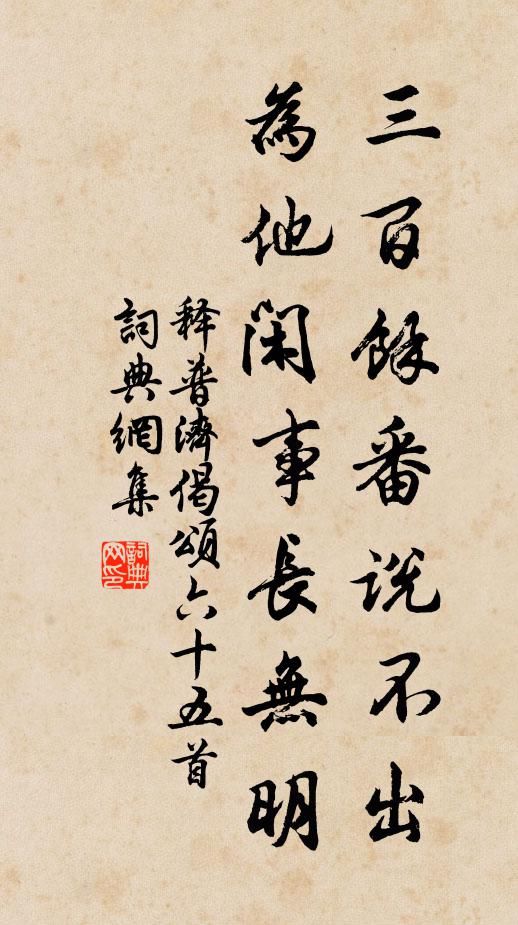 三百餘番說不出
為他閑事長無明
释普濟偈頌六十五首
詞典網集
詞典网印